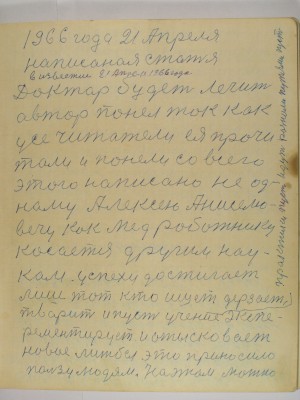 1966 года 21 Апреля
написаная статя
в известие 21 апреля 1966 года
Доктар будет лечит
автор понел ток как
усе читатели ея прочи
тали и понели со всего
этого написано не од-
наму Алексею Анисимо-
вечу как мед работнику
косается другим нау-
кам. успехи достигает
лише тот кто ищит дерзает
тварит и пуст учение Экспе-
рементируст и отысковает
новое лишбы это приносило
ползу людям. На этом можно